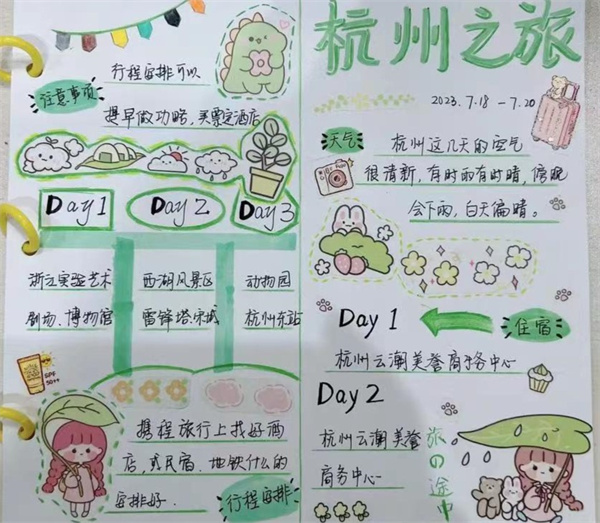 行程安排可以
注意事项
提早做功略,买票定酒店
Day1
Day2
Day3
浙江实验艺术
剧场、博物官
西湖风景区
雷锋塔、宋城
动物园
杭州东站
SPF
50++
携程旅行上找好酒
店,或民宿、地铁什么的
安排好.
行程安排
杭州之旅
2023.7.18 - 7.20
天气
杭州这几天的空气
很清新,有时雨有时晴,傍晚
会下雨,白天偏晴。
Day 1
住宿
杭州云澜美誉商务中心
Day 2
杭州云澜美誉
商务中心
旅の途中